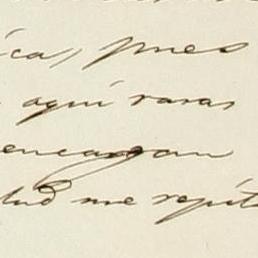 ica, pues
aquí raras
encargan
lud me repit